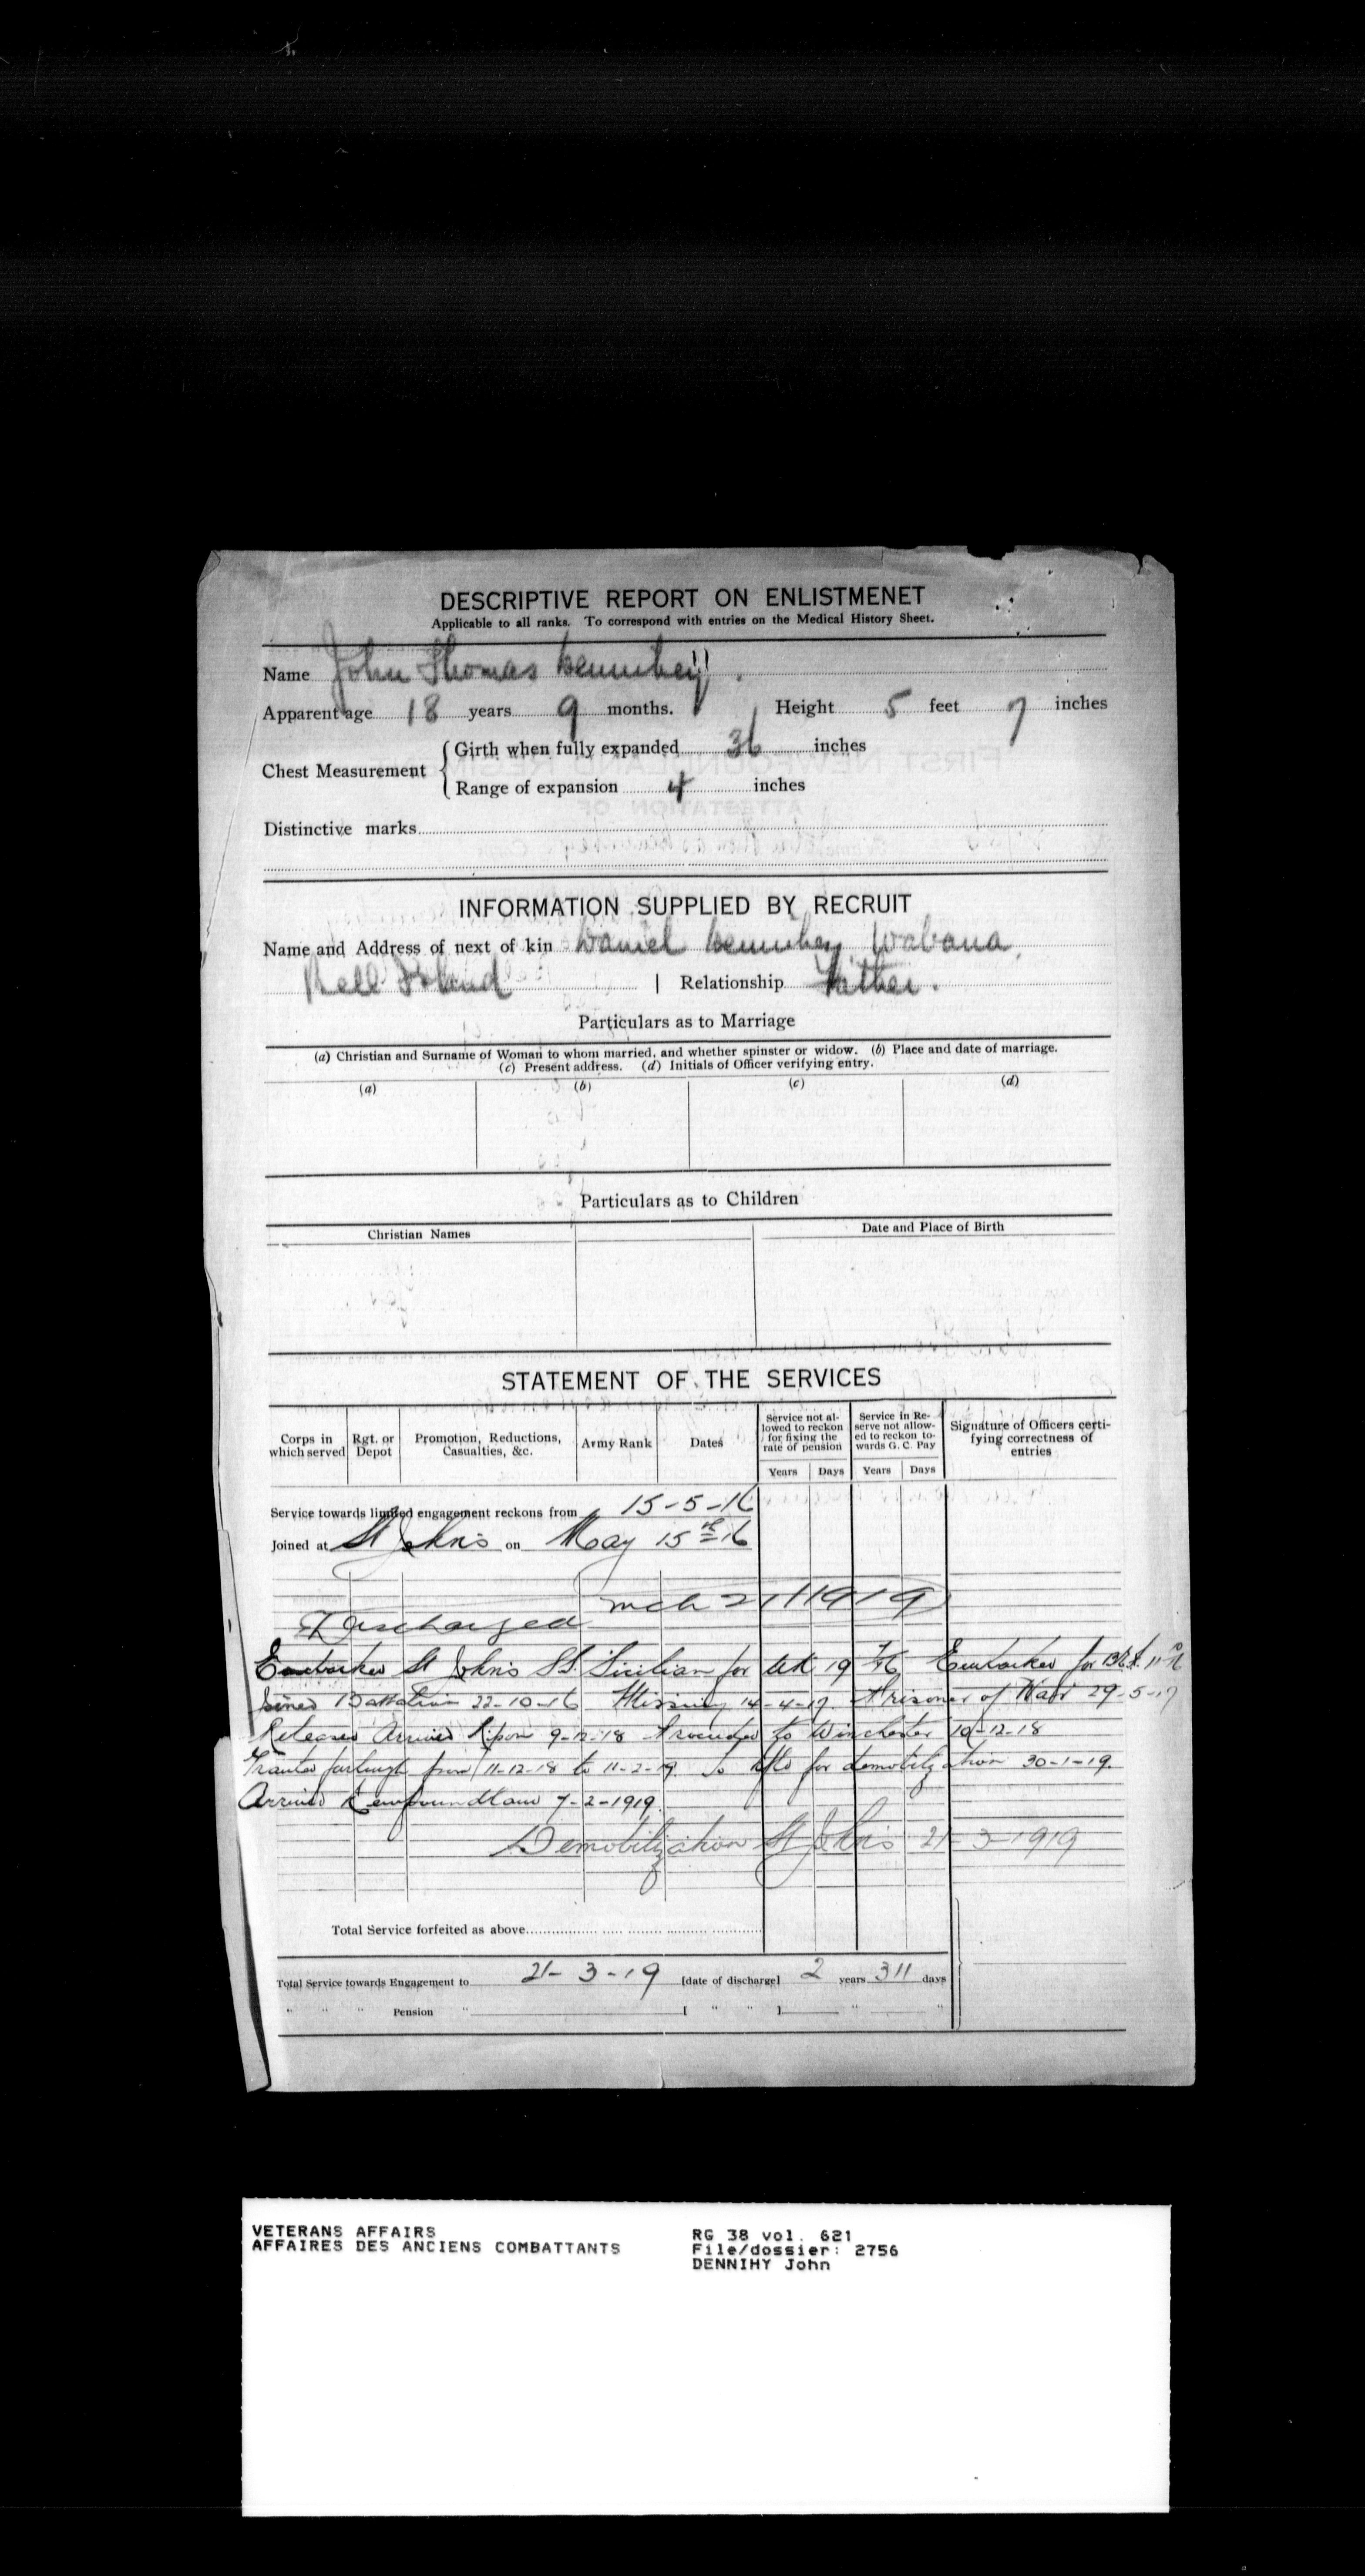 DESCRIPTIVE REPORT ON ENLISTMENET
Applicable to all ranks. To correspond with entries on the Medical History Sheet.
Name John Thomas Dennihey
Apparent age 18 years 9 months. Height 5 feet 7 inches
Chest Measurement { Girth when fully expanded 36 inches
Range of expansion 4 inches
Distinctive marks
INFORMATION SUPPLIED BY RECRUIT
Name and Address of next of kin Daniel Dennihey Wabana,
Bell Island | Relationship Father.
Particulars as to Marriage
(a) Christian and Surname of Woman to whom married, and whether spinster or widow. (b) Place and date of marriage.
(c) Present address. (d) Initials of Officer verifying entry.
(a) (b) (c) (d)
Particulars as to Children
Christian Names Date and Place of Birth
STATEMENT OF THE SERVICES
Corps in which served Rgt. or Depot Promotion, Reductions, Casualties, &c. Army Rank Dates Service not allowed to reckon for fixing the rate of pension Service in Reserve not allowed to reckon towards G. C. Pay Signature of Officers certifying correctness of entries
Years Days Years Days
Service towards limited engagement reckons from 15-5-16
Joined at St John's on May 15th 16
Discharged Mch 21/1919
Embarked St John's SS. Sicilian for UK 19 Embarked for
Joined Battalion 22-10-16 Missing 14-4-17. Prisoner of War 29-5-17
Released Arrived Ripon 9-12-18 Proceeded to Winchester 10-12-18
Granted furlough from 11-12-18 to 11-2-19. To Nfld for demobilization 30-1-19.
Arrived Newfoundland 7-2-1919.
Demobilization St John's 21-3-1919
Total Service forfeited as above
Total Service towards Engagement to 21-3-19 [date of discharge] 2 years 311 days
" " " Pension " [ " " ] " "
VETERANS AFFAIRS RG 38 vol. 621
AFFAIRES DES ANCIENS COMBATTANTS File/dossier: 2756
DENNIHY John